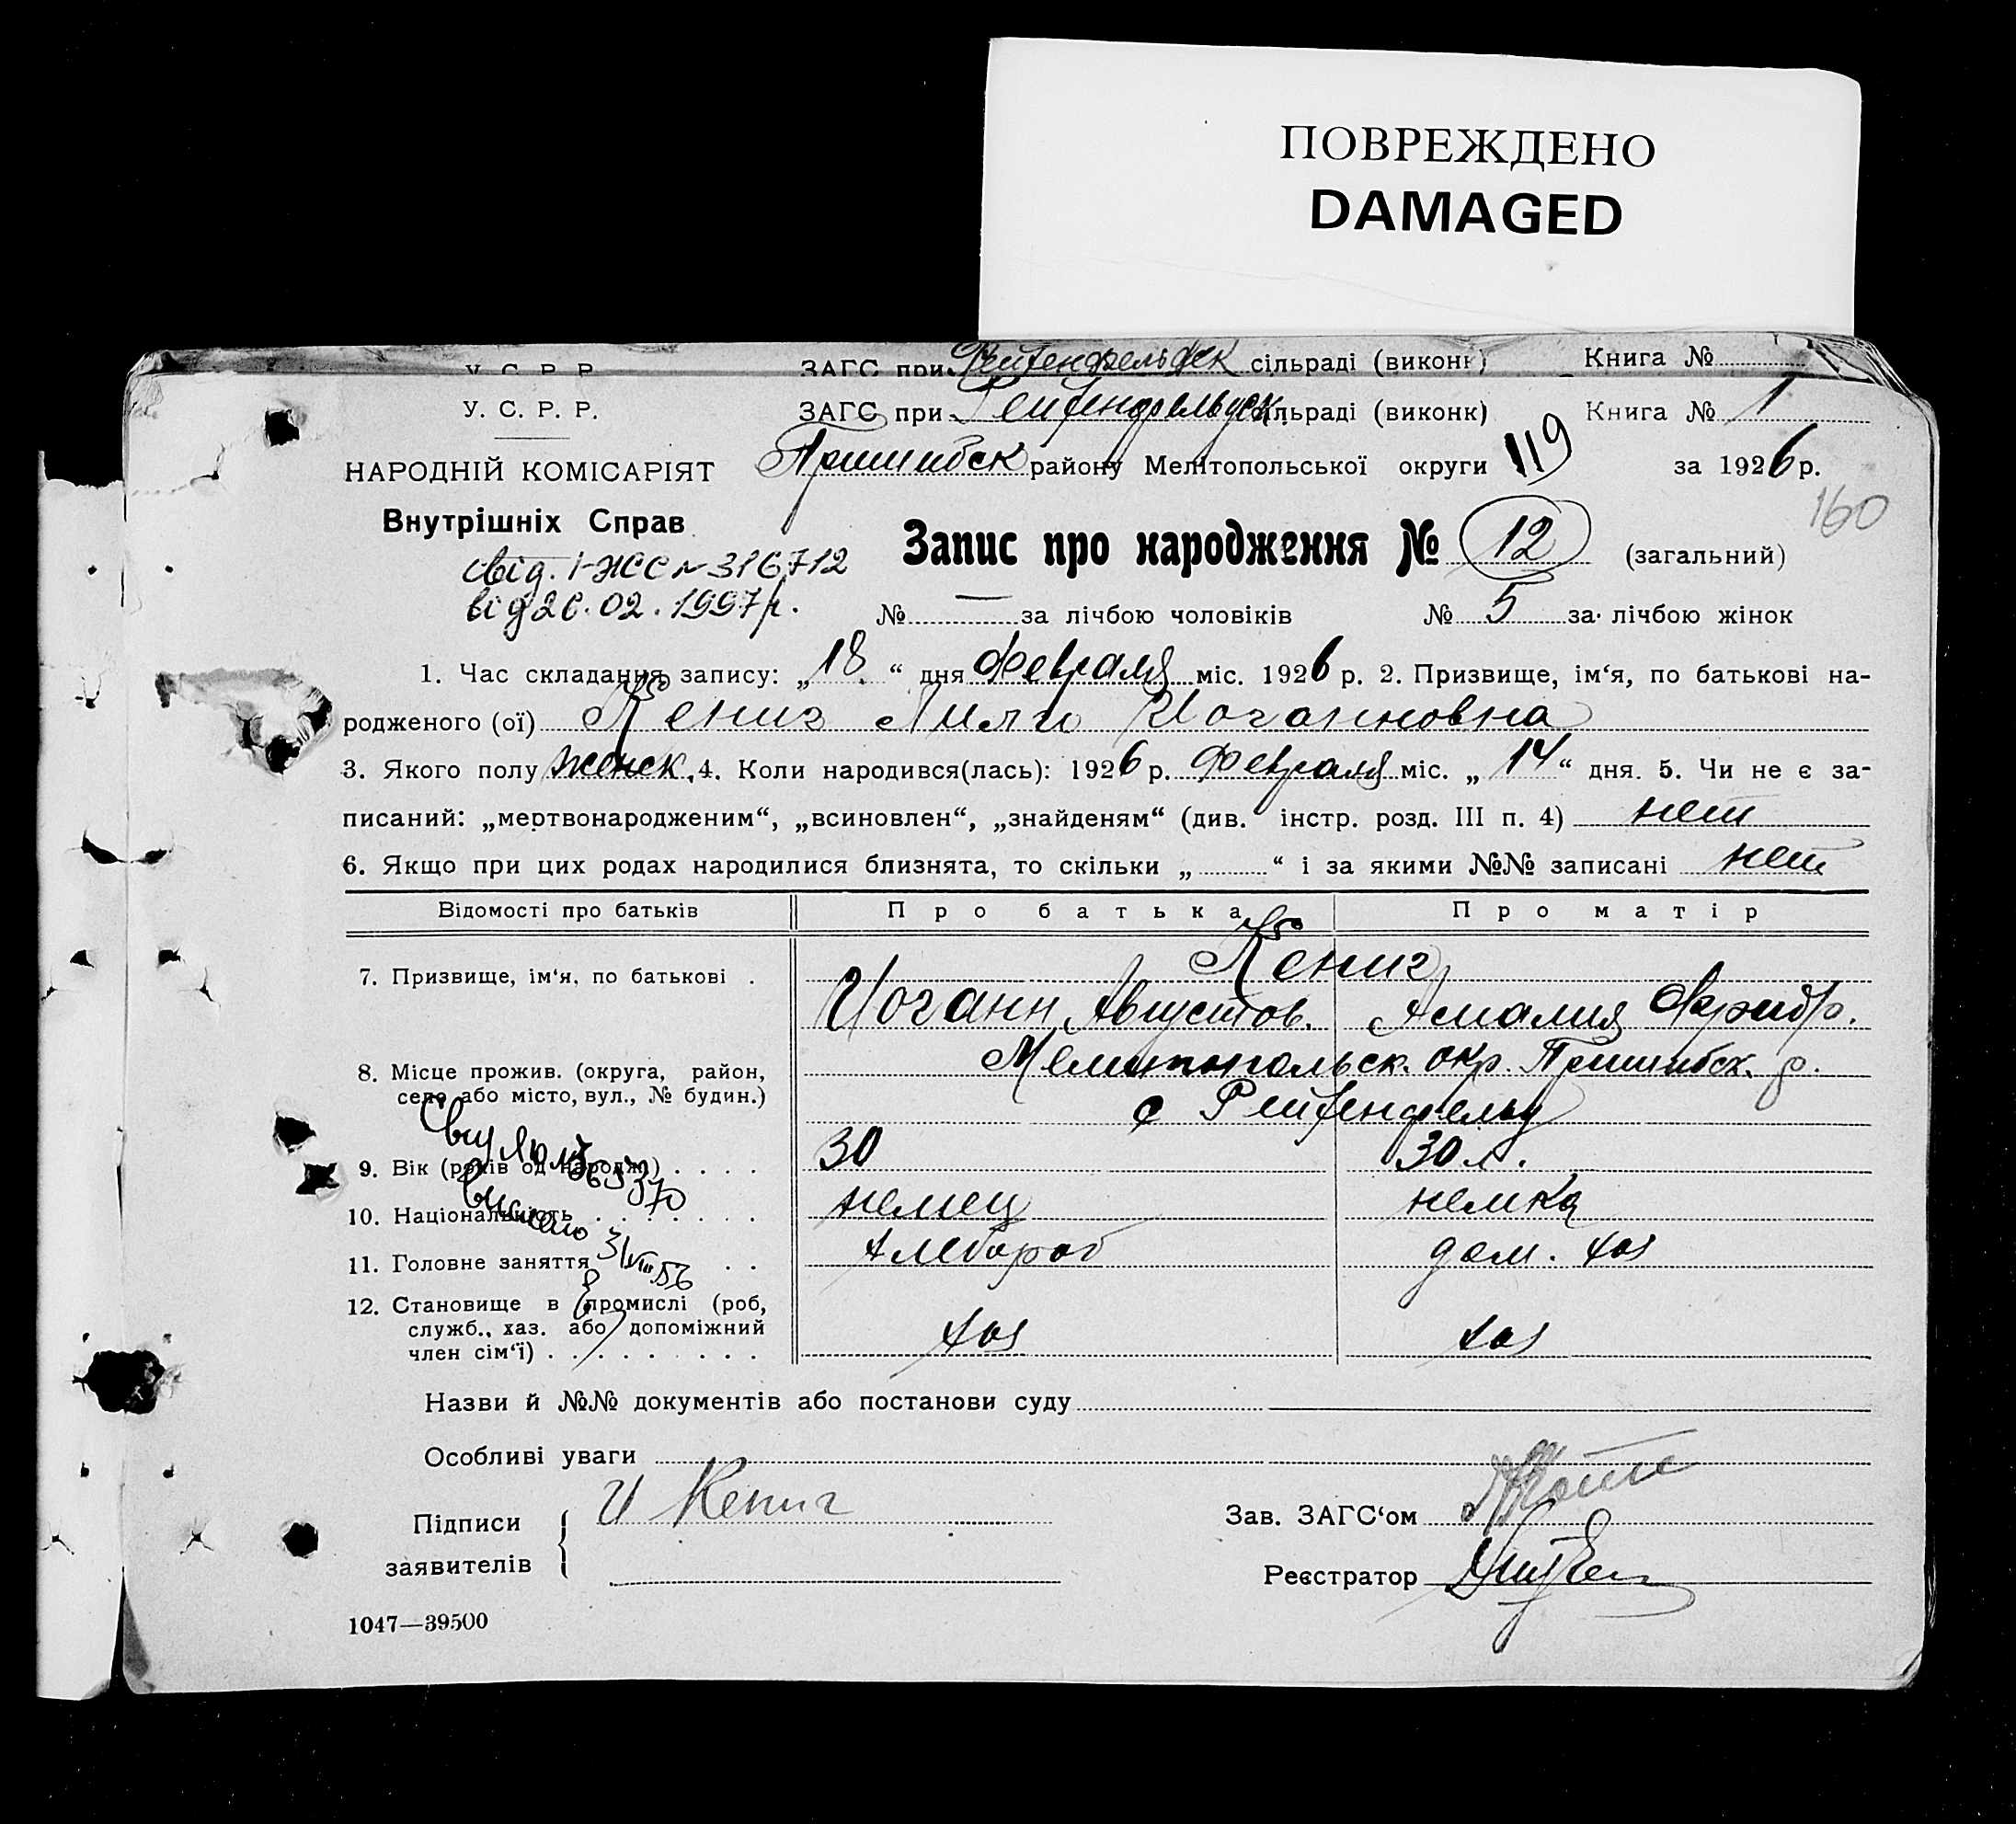 ПОВРЕЖДЕНО
DAMAGED
У. С. Р. Р. ЗАГС при Рейфенфельдск сільраді (виконк) Книга №
У. С. Р. Р. ЗАГС при Рейфенфельдск. сільраді (виконк) Книга № 1
НАРОДНІЙ КОМІСАРІЯТ Пришибск району Мелітопольської округи 119 за 1926 р.
160
Внутрішніх Справ
Запис про народження № 12 (загальний)
свід. I-ЖС № 316712
від 26.02.1997р.
№ — за лічбою чоловіків № 5 за лічбою жінок
1. Час складання запису: „18“ дня Февраля міс. 1926 р. 2. Призвище, ім‘я, по батькові на-
родженого (ої) Кениг Лилю Иоганновна
3. Якого полу женск. 4. Коли народився(лась): 1926 р. Февраля міс. „14“ дня. 5. Чи не є за-
писаний: „мертвонародженим“, „всиновлен“, „знайденям“ (див. інстр. розд. III п. 4) нет
6. Якщо при цих родах народилися близнята, то скільки „ “ і за якими №№ записані нет
Відомості про батьків Про батька Про матір
Кениг
7. Призвище, ім‘я, по батькові .
Иоганн Августов. Амалия Фридр.
8. Місце прожив. (округа, район,
село або місто, вул., № будин.)
Мелитопольск. окр. Пришибск. р.
с Рейфенфельд
9. Вік (років од народж.) . . . . 30 30 л.
10. Національність . . . . . . . немец немка
11. Головне заняття . . хлебороб дом. хоз
12. Становище в промислі (роб,
служб., хаз. або допоміжний
член сім‘ї) . . . . . . . . . хоз хоз
31/VIII 56
Назви й №№ документів або постанови суду
Особливі уваги
Підписи
заявителів
И Кениг
Зав. ЗАГС‘ом
Реєстратор
1047—39500